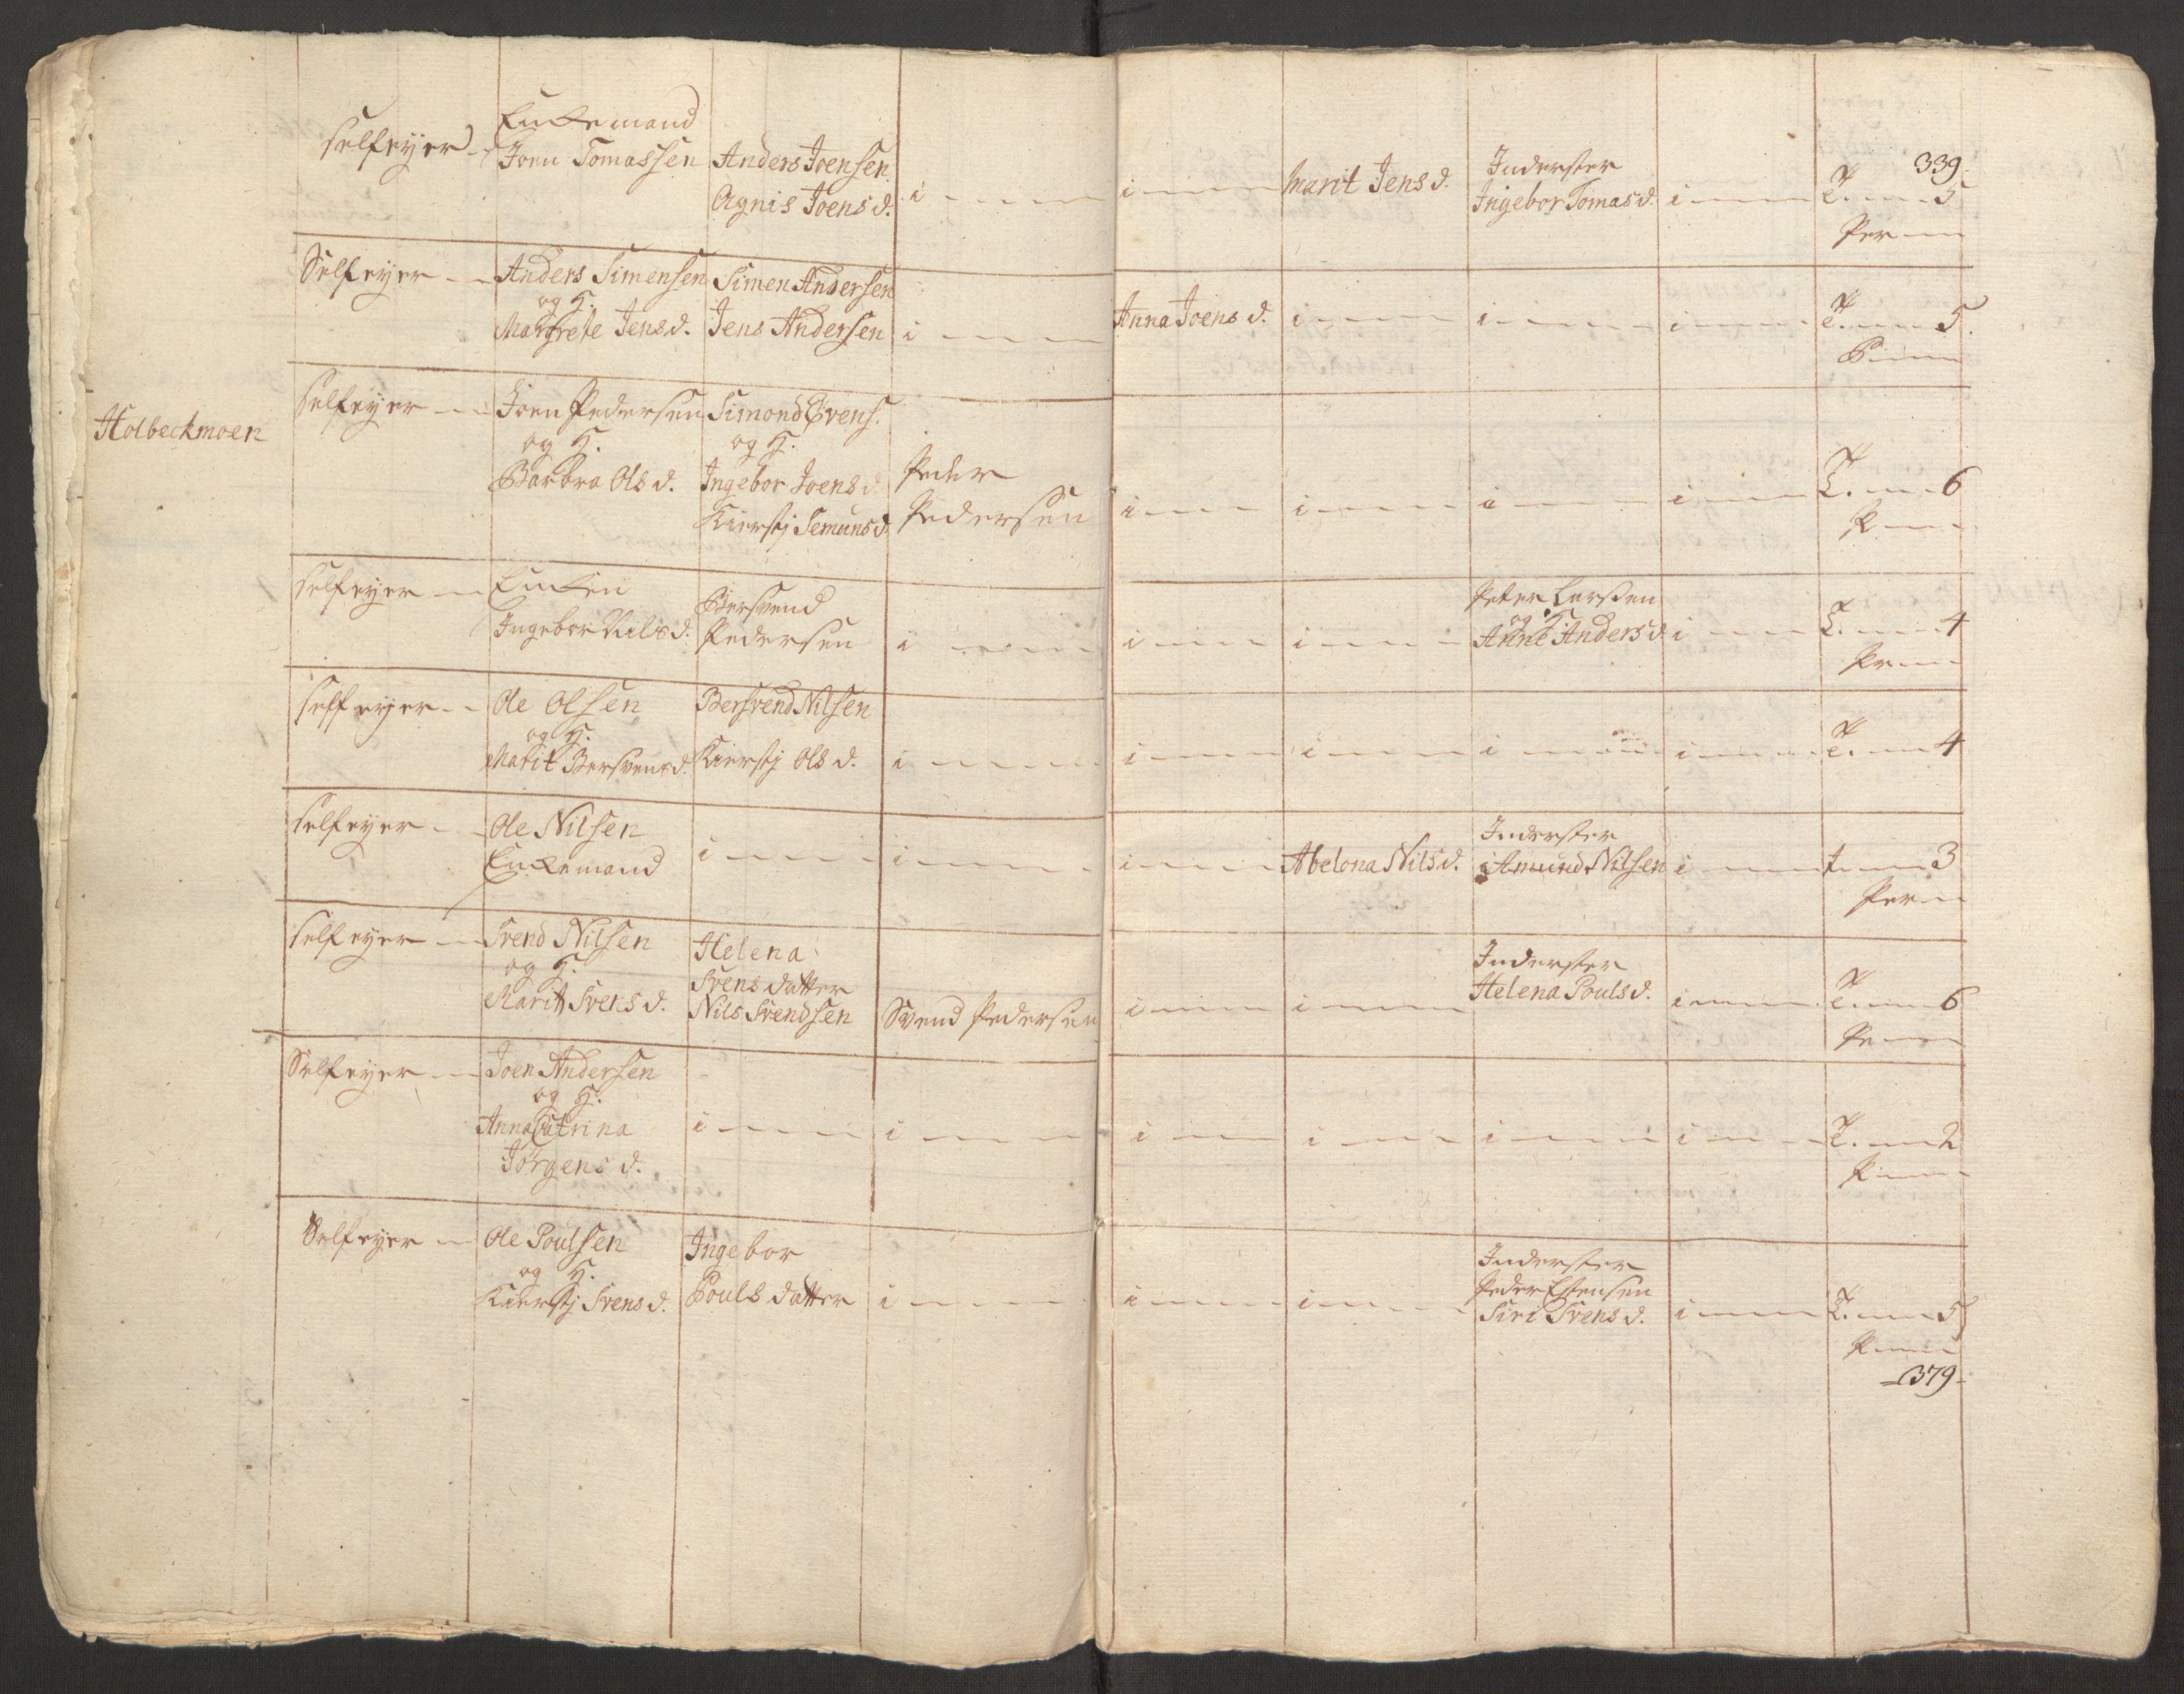 339
selfeyer
Enckemand
Joen Tomassen
Anders Joensen
Agnis Joens d.
i
i
Marit Jens d.
Inderster
Ingebor Tomas d.
i
5
Per
Selfeyer
Anders Simensen
og H.
Margrete Jens d.
Simen Andersen
Jens Andersen
i
Anna Joens d.
i
i
i
5
Holbeckmoen
selfeyer
Joen Pedersen
og H.
Barbra Ols d.
Simond Evens.
og H.
Ingebor Joens d
Kierstj Semuns d
Peder
Pedersen
i
i
i
i
6
selfeyer
Encken
Ingebor Nils d.
Bersvend
Pedersen
i
i
i
Peter Larssen
og H.
Anne Anders d.
i
4
selfeyer
Ole Olsen
og H.
Marit Bersvens d.
Bersvend Nilsen
Kierstj Ols d.
i
i
i
i
i
4
selfeyer
Ole Nilsen
Enckemand
i
i
i
Abelona Nils d.
Inderster
Amund Nilsen
i
3
Per
selfeyer
Svend Nilsen
og H.
Maritt Svens d.
Helena
Svens datter
Nils Svendsen
Svend Pedersen
i
i
Inderster
Helena Pouls d.
i
6
Selfeyer
Joen Andersen
og H.
Anna Catrina
Jørgens d.
i
i
i
i
i
i
2
Selfeyer
Ole Poulsen
og H.
Kierstj Svens d.
Ingebor
Pouls datter
i
i
i
Inderster
Peder Estensen
Siri Svens d.
i
5
379